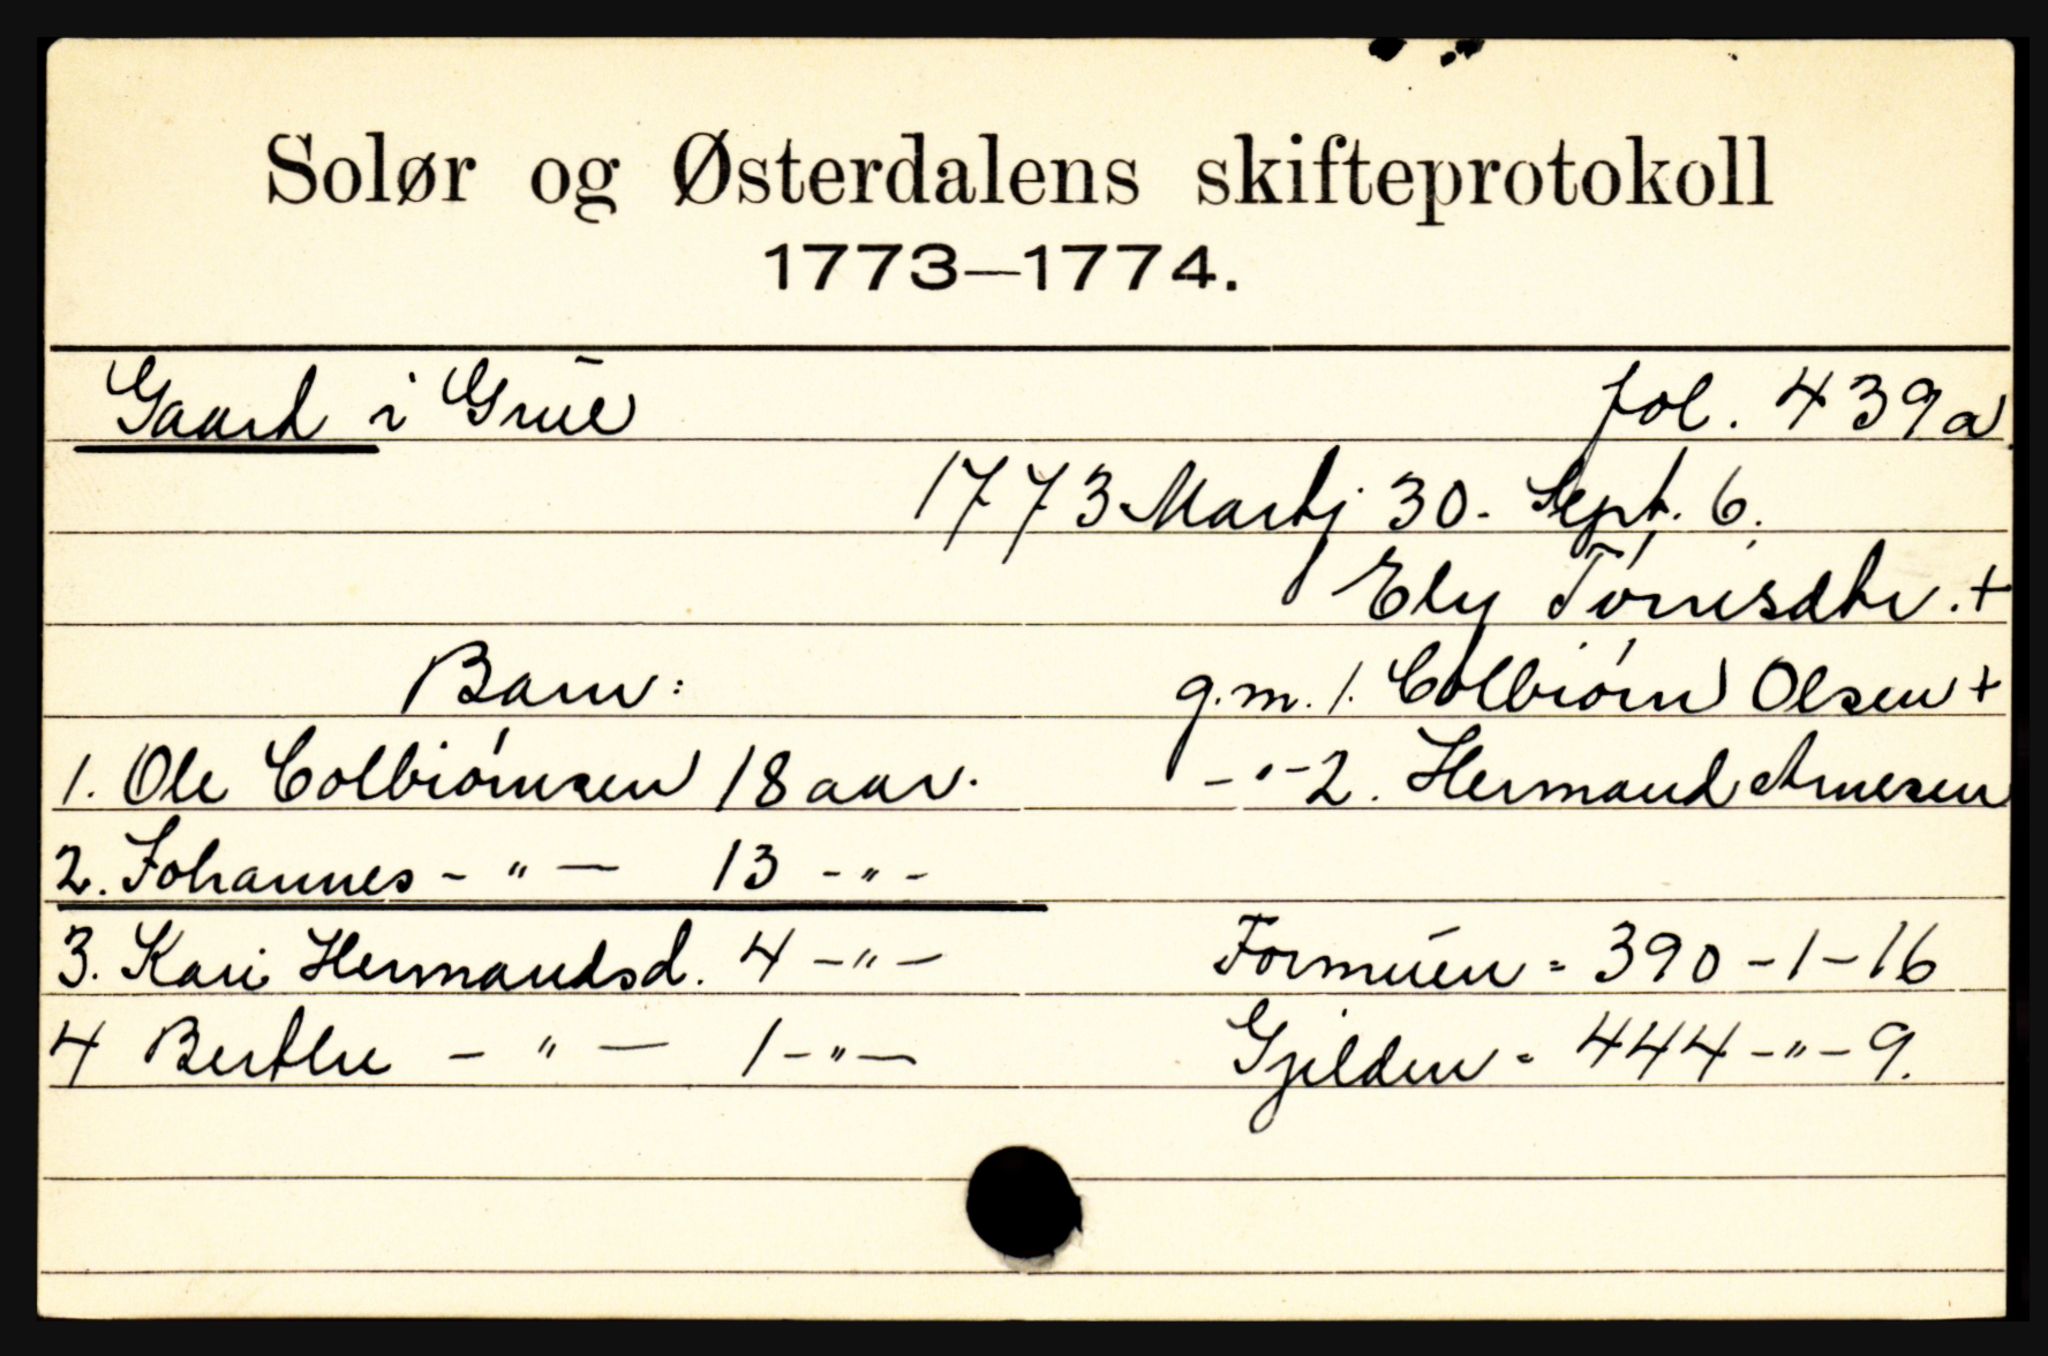 Solør og Østerdalens skifteprotokoll
1773—1774.
Gaard i Grue fol. 439a.
1773 Martj 30. Sept. 6.
Ely Tórrisdtr. +
Barn: g.m. 1. Colbiórn Olsen +
1. Ole Colbiórnsen 18 aar. -"- 2. Hermand Arnesen
2. Johannes - " - 13 -"-
3. Kari Hermandsd. 4 -"- Formuen = 390 - 1 - 16
4 Berthe - " - 1 -"- Gjelden = 444 -"- 9.